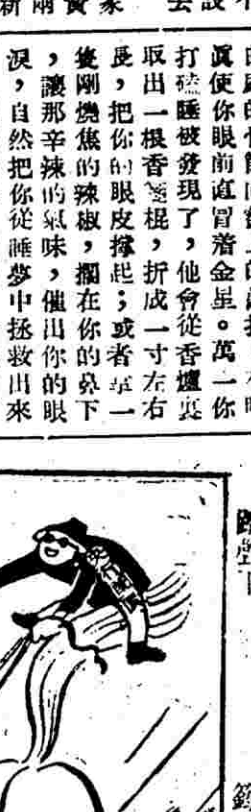 眞使你眼前直冒着金星。萬一你
打磕睡被發現了，他會從香爐裏
取出一根香籤棍，折成一寸左右
長，把你的眼皮撑起；或者拿一
隻剛燒焦的辣椒，擱在你的鼻下
，讓那辛辣的氣味，催出你的眼
淚，自然把你從睡夢中拯救出來